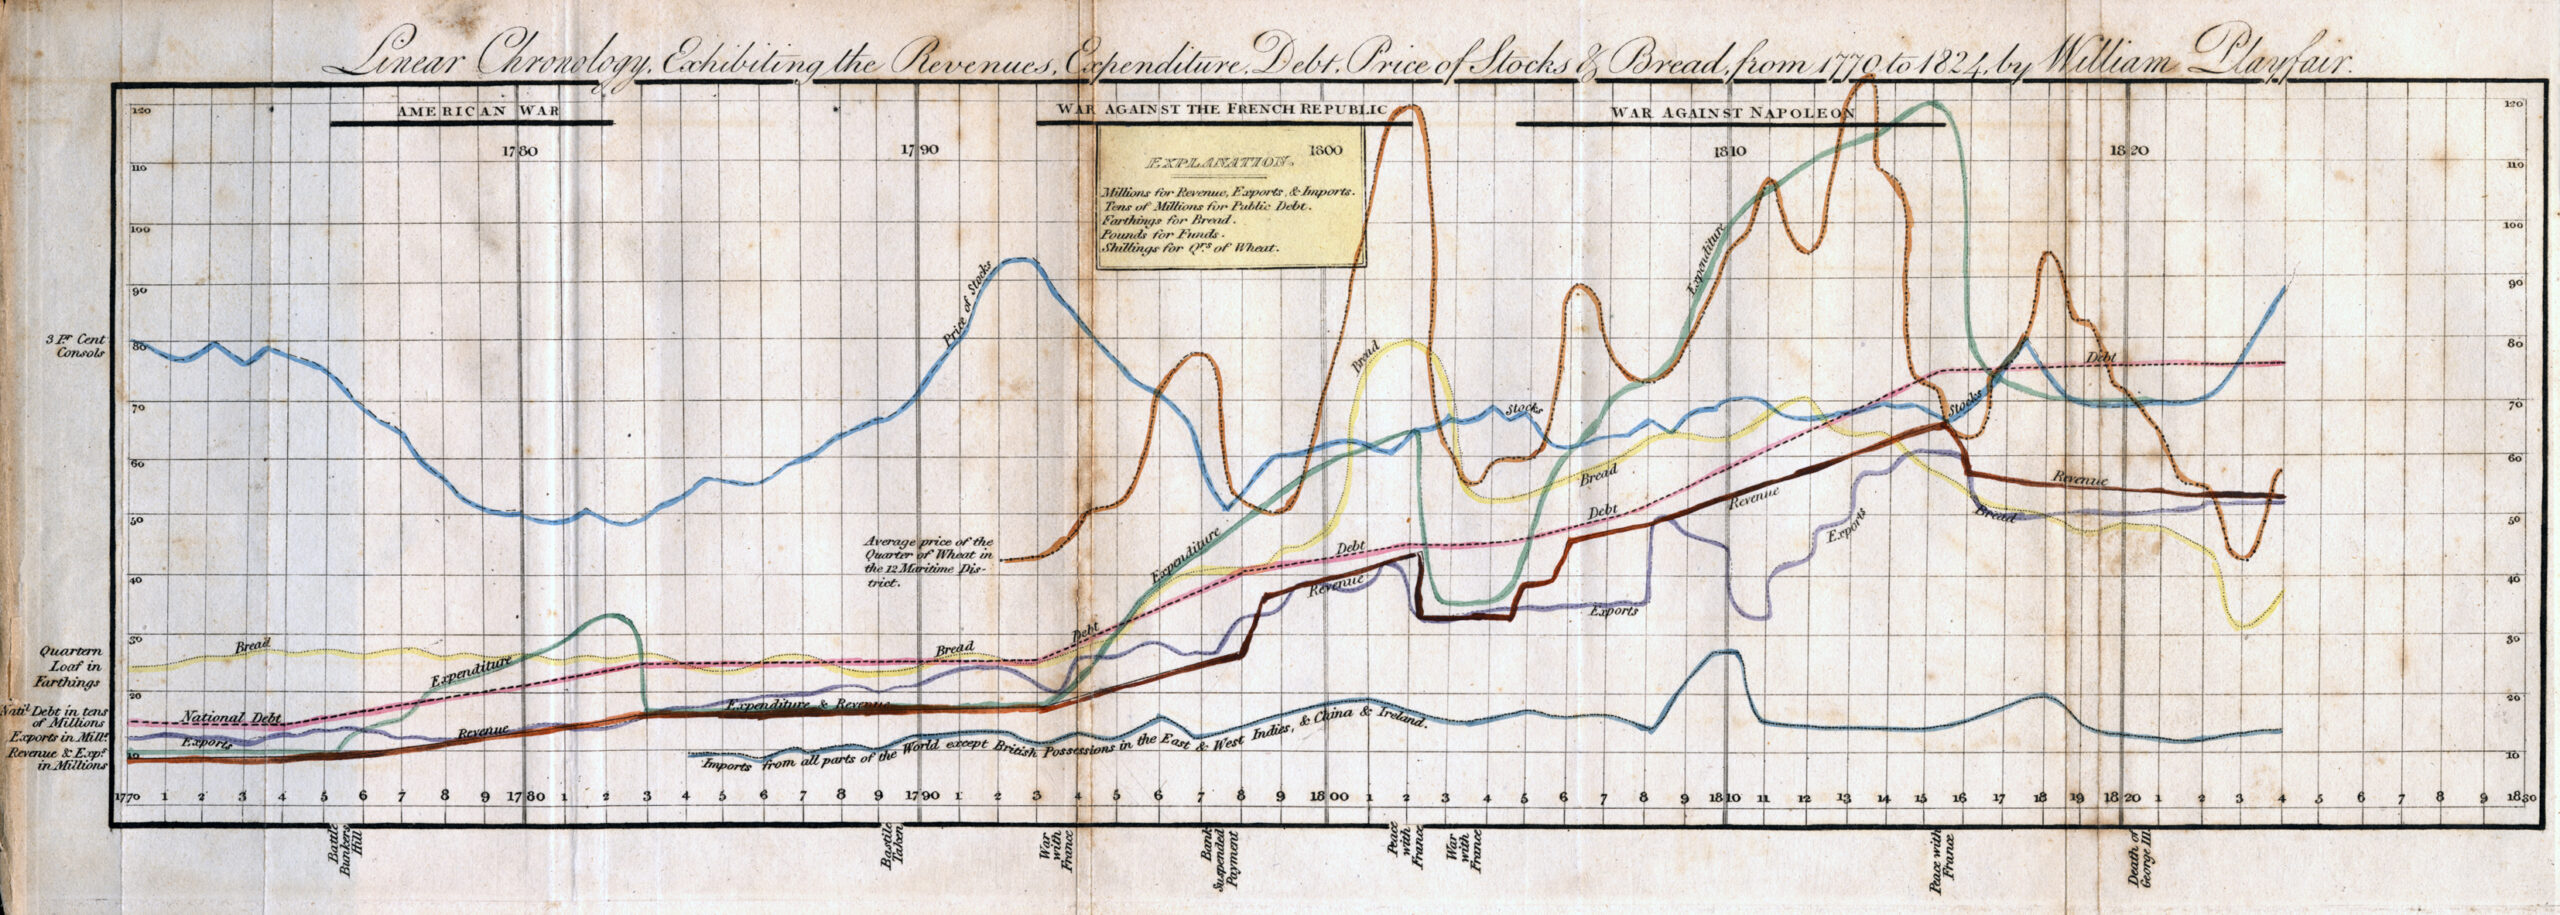 Linear Chronology, Exhibiting the Revenues, Expenditure, Debt, Price of Stocks & Bread, from 1770 to 1824, by William Playfair.
AMERICAN WAR
WAR AGAINST THE FRENCH REPUBLIC
WAR AGAINST NAPOLEON
1780
1790
1800
1810
1820
EXPLANATION.
Millions for Revenue, Exports, & Imports.
Tens of Millions for Public Debt.
Farthings for Bread.
Pounds for Funds.
Shillings for Qrs of Wheat.
120
110
100
90
80
70
60
50
40
30
20
10
3 Pr Cent
Consols
Quartern
Loaf in
Farthings
Natl Debt in tens
of Millions
Exports in Mills
Revenue & Expe
in Millions
Price of Stocks
Bread
Expenditure
National Debt
Exports
Revenue
Expenditure & Revenue
Bread
Average price of the
Quarter of Wheat in
the 12 Maritime Dis-
trict.
Debt
Expenditure
Bread
Debt
Revenue
Imports from all parts of the World except British Possessions in the East & West Indies, & China & Ireland.
Stocks
Bread
Debt
Exports
Revenue
Expenditure
Exports
Stocks
Debt
Revenue
Bread
120
110
100
90
80
70
60
50
40
30
20
10
1770 1 2 3 4 5 6 7 8 9 1780 1 2 3 4 5 6 7 8 9 1790 1 2 3 4 5 6 7 8 9 1800 1 2 3 4 5 6 7 8 9 1810 11 12 13 14 15 16 17 18 19 1820 1 2 3 4 5 6 7 8 9 1830
Battle
Bunkers
Hill
Bastile
Taken
War
with
France
Bank
Suspended
Payment
Peace
with
France
War
with
France
Peace with
France
Death of
George III